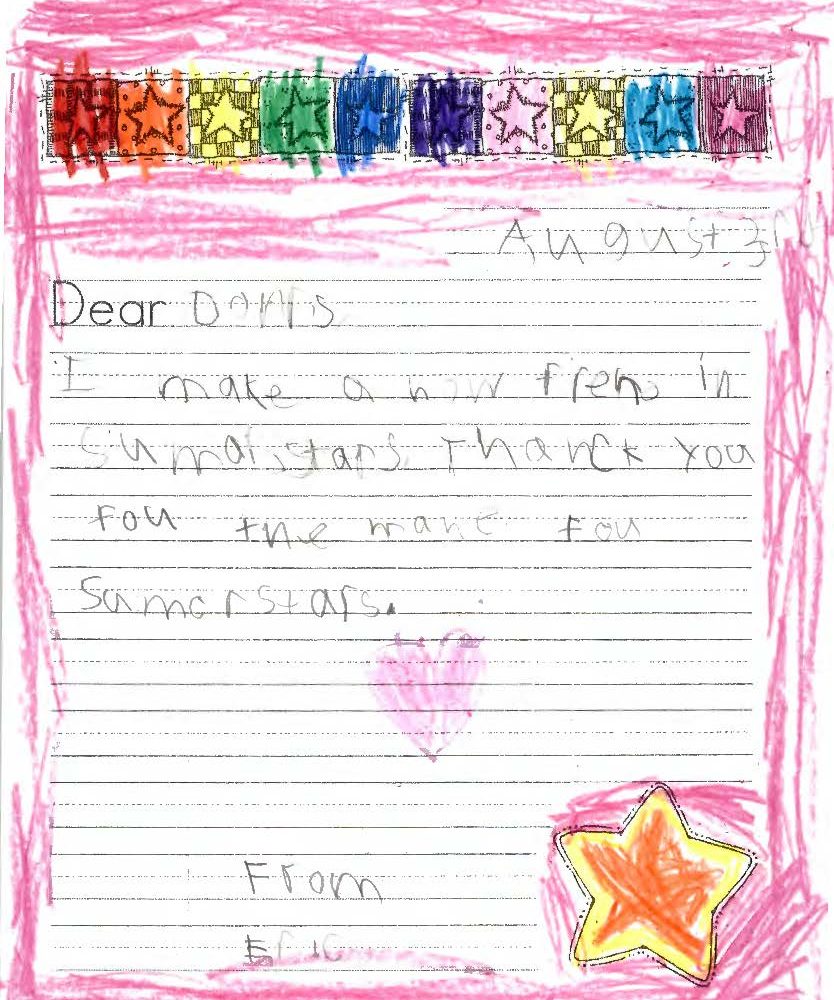 August 3rd
Dear Donrs
I make a now frend in
Sumarstars. Thanck you
fou the mane fou
Sumerstars.
From
Eric